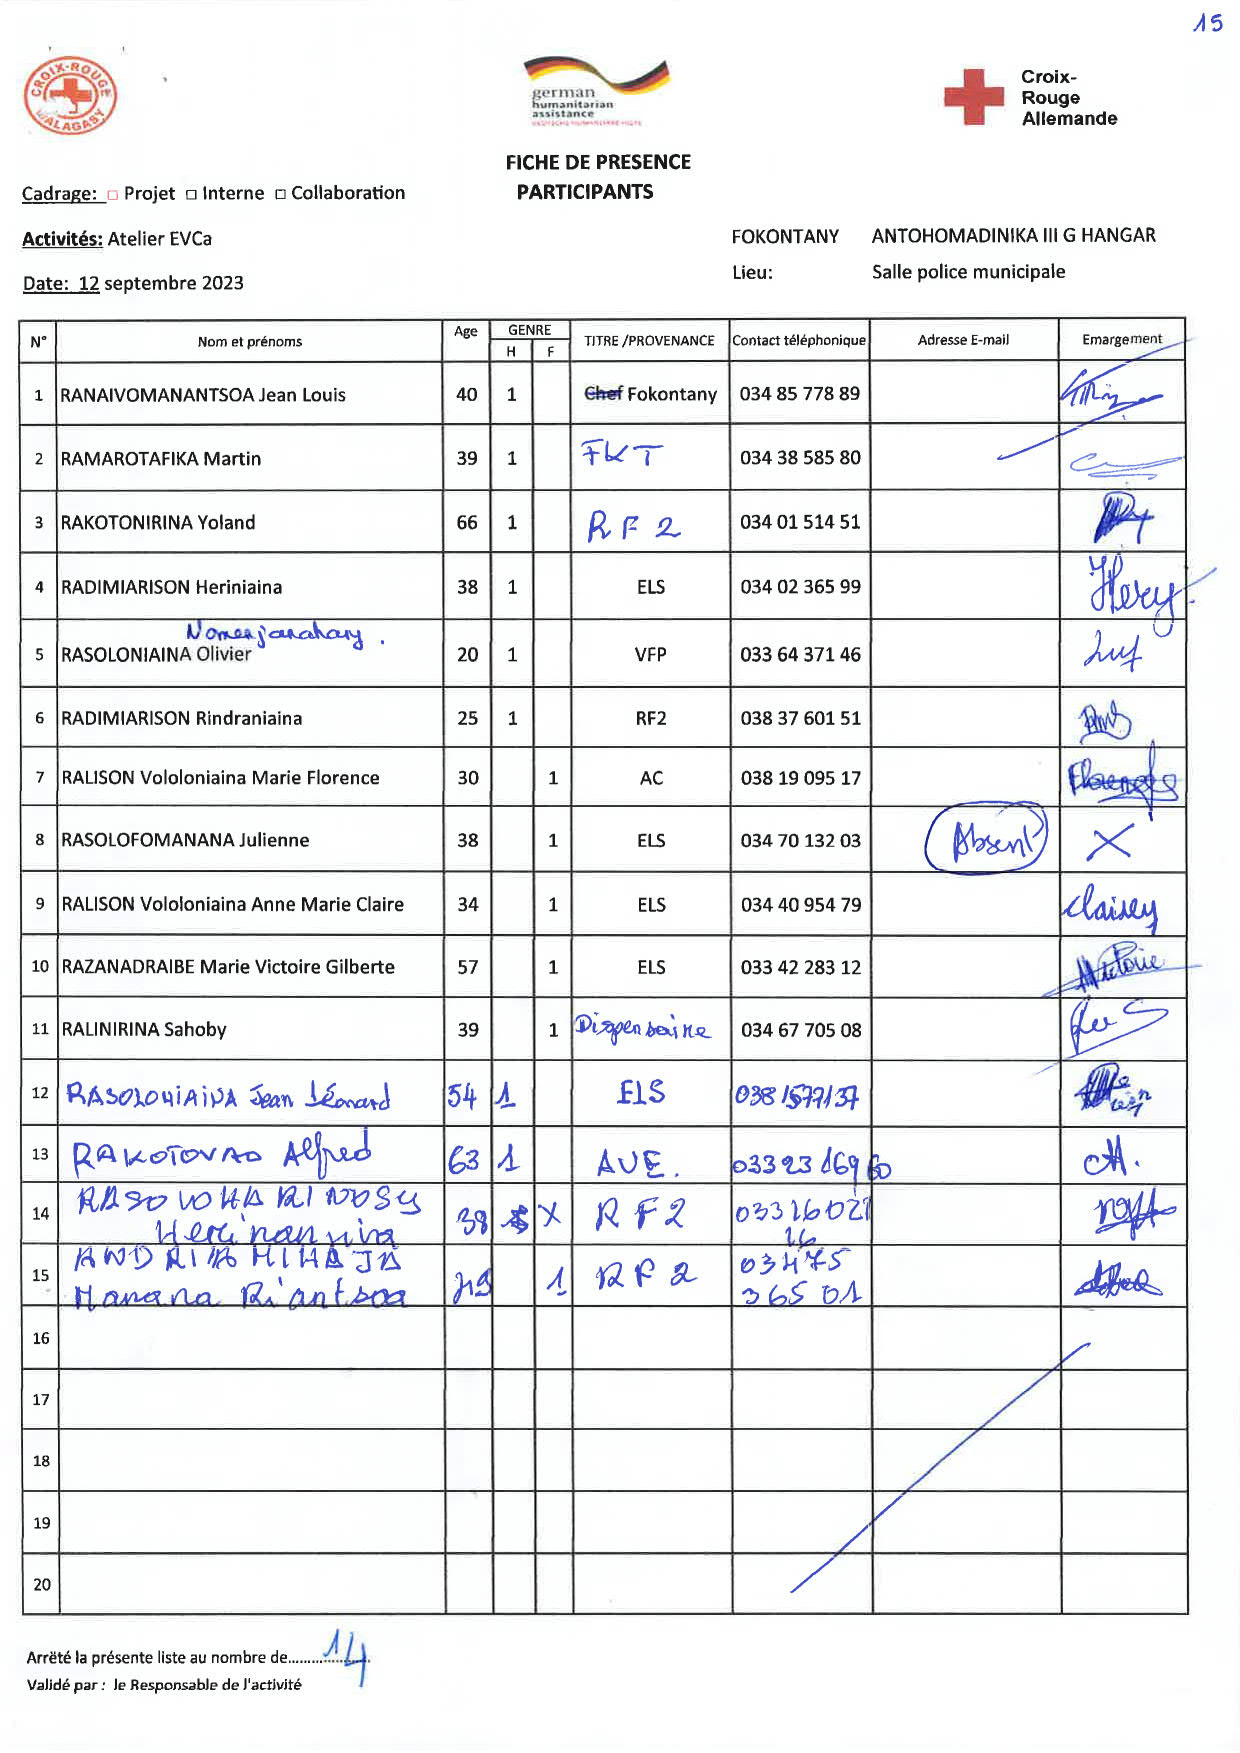 15
CROIX-ROUGE MALAGASY
german
humanitarian
assistance
DEUTSCHE HUMANITÄRE HILFE
Croix-
Rouge
Allemande
FICHE DE PRESENCE
PARTICIPANTS
Cadrage: □ Projet □ Interne □ Collaboration
Activités: Atelier EVCa
FOKONTANY ANTOHOMADINIKA III G HANGAR
Lieu: Salle police municipale
Date: 12 septembre 2023
N° Nom et prénoms Age GENRE TITRE /PROVENANCE Contact téléphonique Adresse E-mail Emargement
H F
1 RANAIVOMANANTSOA Jean Louis 40 1 Chef Fokontany 034 85 778 89
2 RAMAROTAFIKA Martin 39 1 FKT 034 38 585 80
3 RAKOTONIRINA Yoland 66 1 RF2 034 01 514 51
4 RADIMIARISON Heriniaina 38 1 ELS 034 02 365 99 Hery
Nomenjanahary.
5 RASOLONIAINA Olivier 20 1 VFP 033 64 371 46
6 RADIMIARISON Rindraniaina 25 1 RF2 038 37 601 51
7 RALISON Vololoniaina Marie Florence 30 1 AC 038 19 095 17
8 RASOLOFOMANANA Julienne 38 1 ELS 034 70 132 03 Absent X
9 RALISON Vololoniaina Anne Marie Claire 34 1 ELS 034 40 954 79
10 RAZANADRAIBE Marie Victoire Gilberte 57 1 ELS 033 42 283 12 Victoire
11 RALINIRINA Sahoby 39 1 Dispensaire 034 67 705 08
12 RASOLONIAINA Jean Léonard 54 1 ELS
13 RAKOTOVAO Alfred 63 1 AVE. 033 23 169 60
14 RASOVOHARINOSY 38 X RF2 033 16 021
16
15 ANDRIAMIHAJA 1 RF2 034 75
Hanana Riantsoa 365 01
16
17
18
19
20
Arrêté la présente liste au nombre de.......14
Validé par : le Responsable de l'activité